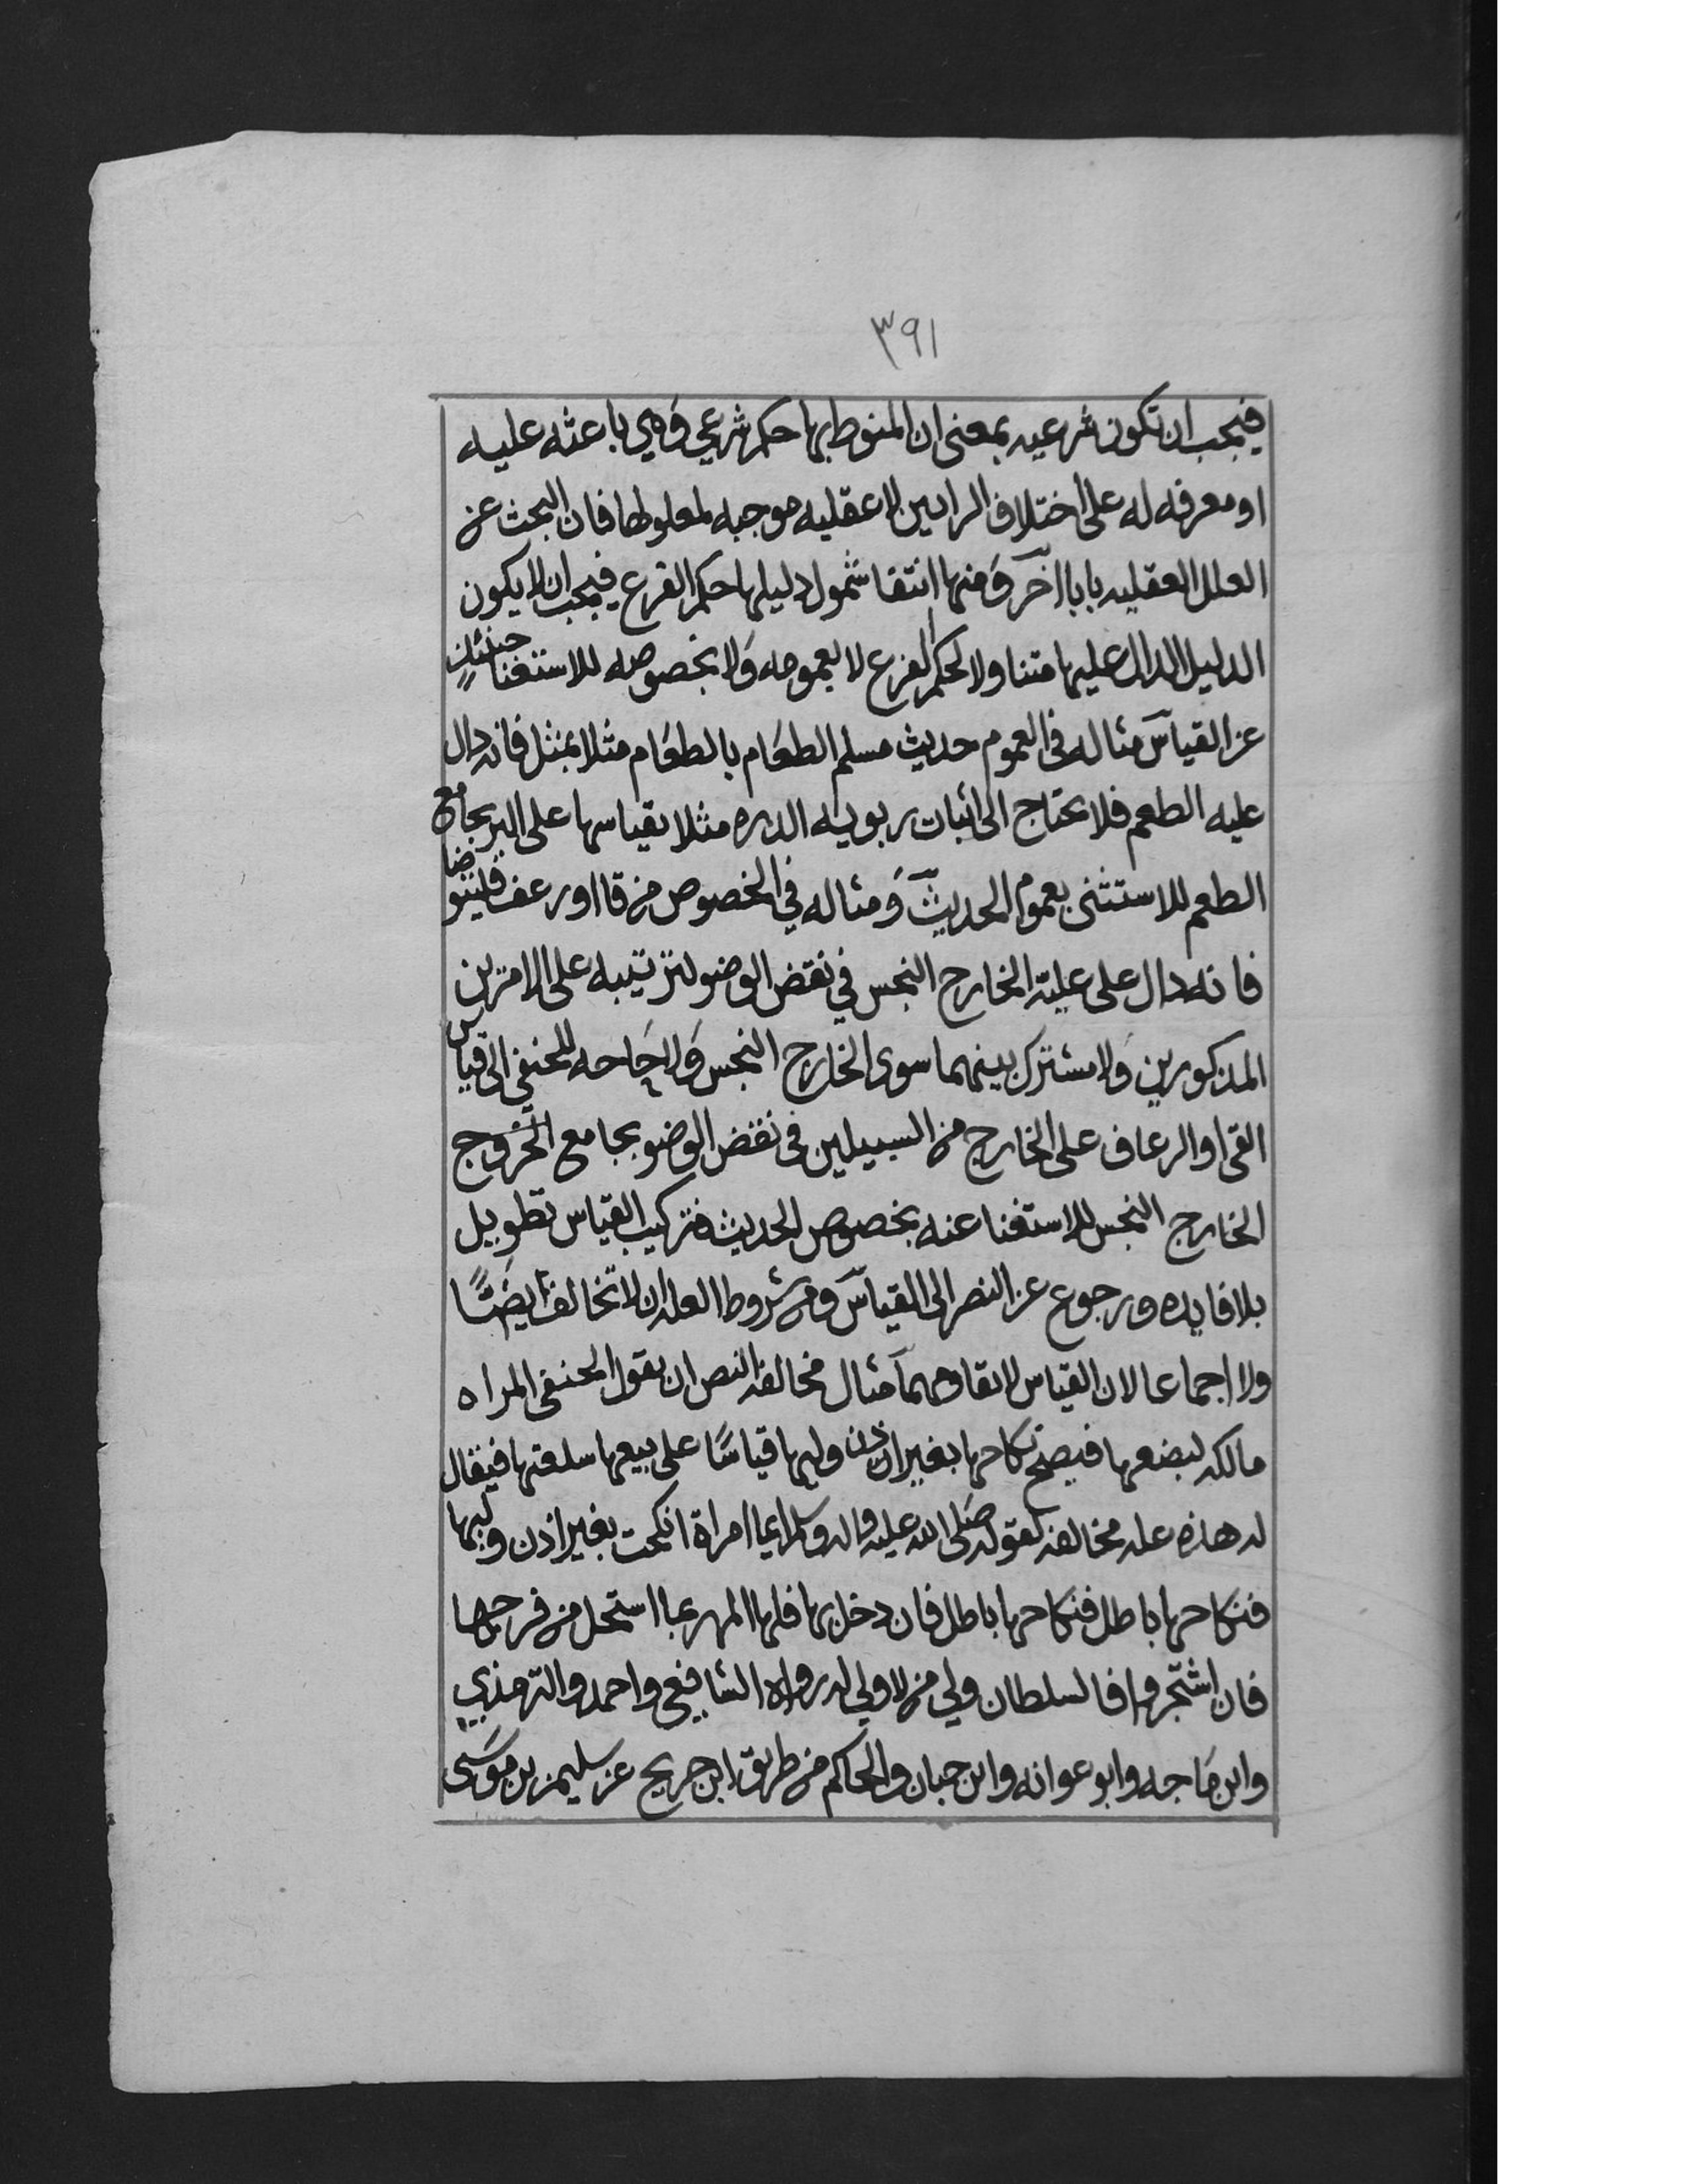 ٣٩١
فيجب ان تكون شرعيه بمعنى ان المنوط بها حكم شرعي وهي باعثه عليه
او معرفه له على اختلاف الرايين لا عقليه موجبه لمعلولها فان البحث عن
العلل العقليه بابا آخر ومنها انتفا شمول دليلها حكم الفرع فيجب ان لا يكون
الدليل الدال عليها متناولا لحكم الفرع لا بعمومه ولا بخصوصه للاستغنا حينئذٍ
عن القياس مثاله فى العموم حديث مسلم الطعام بالطعام مثلا بمثل فانه دال
عليه الطعم فلا يحتاج الى اثبات ربويه الذره مثلا بقياسها على البر بجامع
الطعم للاستثنى بعموم الحديث ومثاله في الخصوص من قا او رعف فليتوضا
فانه دال على علية الخارج النجس في نقض الوضو لترتيبه على الامرين
المذكورين ولا مشترك بينهما سوى الخارج النجس ولا حاحه للحنفي الى قياس
القى او الرعاف على الخارج من السبيلين فى نقض الوضو بجامع الخروج
الخارج النجس للاستغنا عنه بخصوص الحديث فتركيب القياس تطويل
بلا فايده ورجوع عن النص الى القياس ومن شروط العله ان لا تخالف ايضًا
ولا اجماعا لان القياس لا يقاومهما مثال مخالفة النص ان يقول الحنفى المراه
مالكه لبضعها فيصح نكاحها بغير اذن وليها قياسًا على بيعها سلعتها فيقال
له هذه عله مخالفه لقوله صلى الله عليه واله وسلم ايما امراة انكحت بغير اذن وليها
فنكاحها باطل فنكاحها باطل فان دخل بها فلها المهر بما استحل من فرجها
فان اشتجروا فالسلطان ولي من لا ولي له رواه الشافعي واحمد والترمذي
وابن ماجه وابو عوانه وابن حبان والحاكم من طريق ابن جريح عن سليمن بن موسى